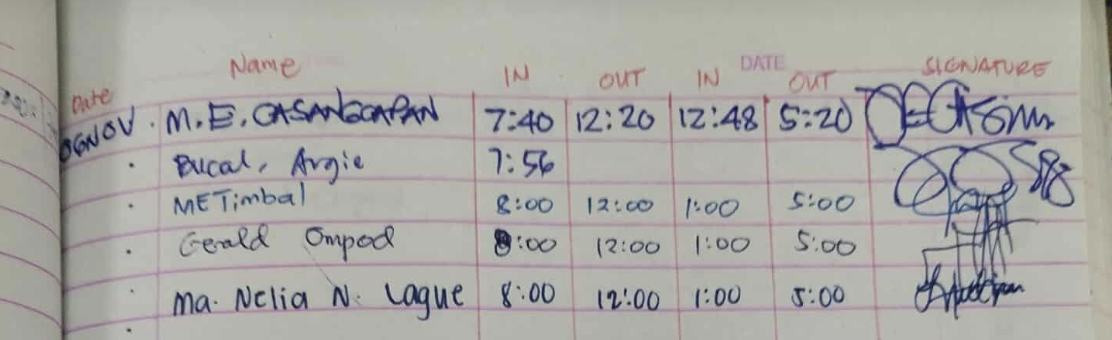 DATE
Date Name IN OUT IN OUT SIGNATURE
06NOV . M.E. CASANGCAPAN 7:40 12:20 12:48 5:20
. Bucal, Argie 7:56
. METimbal 8:00 12:00 1:00 5:00
. Gerald Ompod 8:00 12:00 1:00 5:00
. Ma. Nelia N. Lague 8:00 12:00 1:00 5:00
.